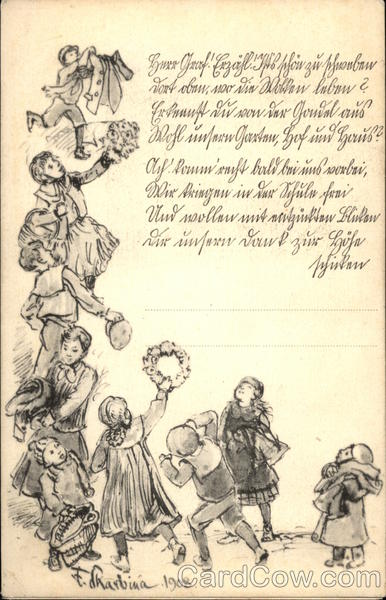 Herr Graf! Erzähl! Ist's schön zu schweben
Dort oben, wo die Wolken leben?
Erkennst du von der Gondel aus
Wohl unsern Garten, Hof und Haus?
Ach! komm' recht bald bei uns vorbei,
Wir kriegen in der Schule frei
Und wollen mit entzückten Blicken
Dir unsern Dank zur Höhe
schicken
F. Skarbina 190
CardCow.com